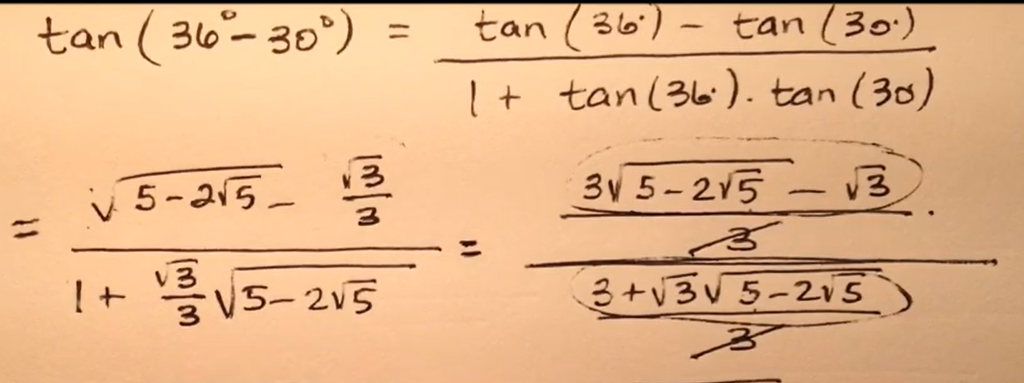 tan(36°-30°) = (tan(36°) - tan(30°)) / (1 + tan(36°). tan(30))
= (√(5-2√5) - √3/3) / (1 + √3/3 √(5-2√5)) = ((3√(5-2√5) - √3)/3) / ((3+√3√(5-2√5))/3)